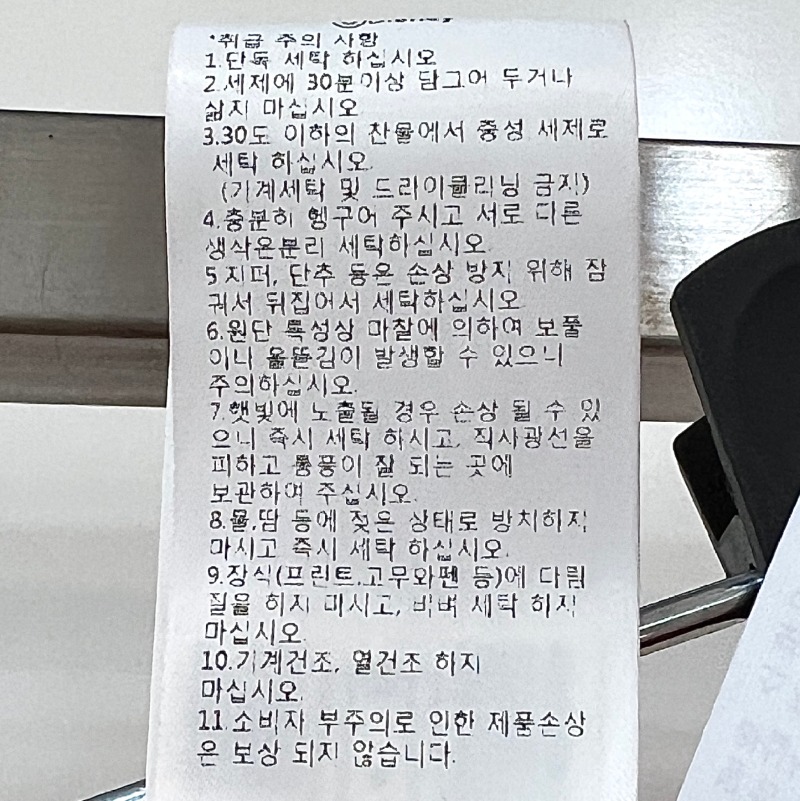 *취급 주의 사항
1.단독 세탁 하십시오
2.세제에 30분이상 담그어 두거나
삶지 마십시오
3.30도 이하의 찬물에서 중성 세제로
세탁 하십시오.
(기계세탁 및 드라이클리닝 금지)
4.충분히 헹구어 주시고 서로 다른
생삭은분리 세탁하십시오.
5.지퍼, 단추 등은 손상 방지 위해 잠
궈서 뒤집어서 세탁하십시오
6.원단 특성상 마찰에 의하여 보풀
이나 올뜯김이 발생할 수 있으니
주의하십시오.
7.햇빛에 노출될 경우 손상 될 수 있
으니 즉시 세탁 하시고, 직사광선을
피하고 통풍이 잘 되는 곳에
보관하여 주십시오.
8.물,땀 등에 젖은 상태로 방치하지
마시고 즉시 세탁 하십시오.
9.장식(프린트.고무와펜 등)에 다림
질을 하지 마시고, 비벼 세탁 하지
마십시오.
10.기계건조, 열건조 하지
마십시오.
11.소비자 부주의로 인한 제품손상
은 보상 되지 않습니다.